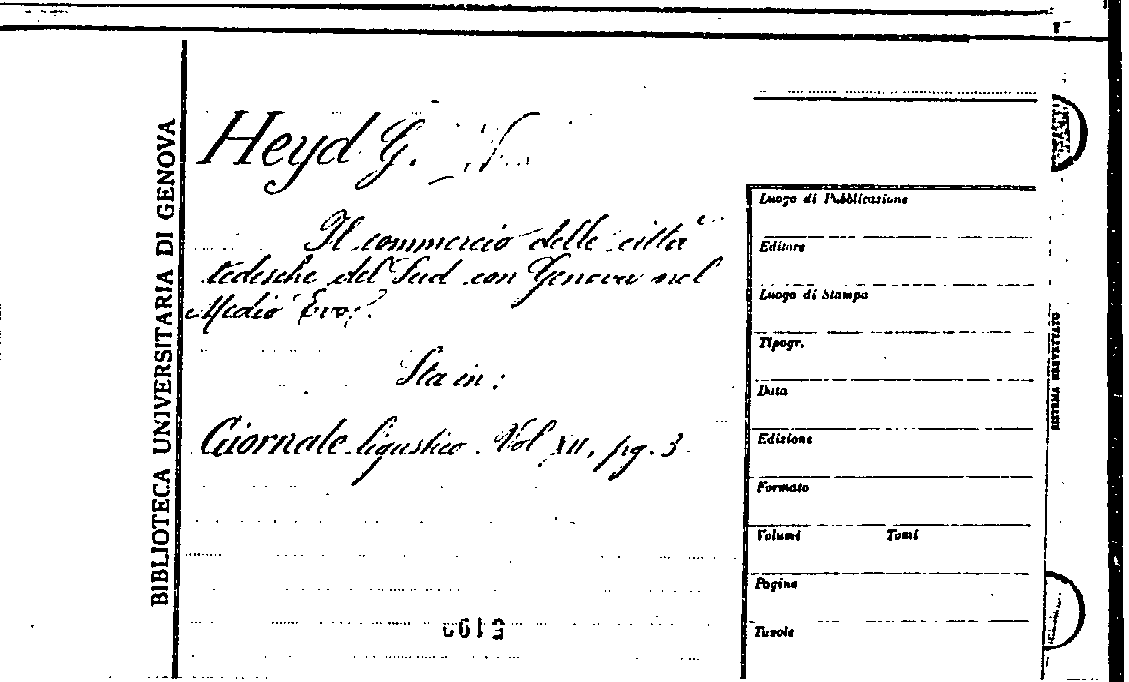 BIBLIOTECA UNIVERSITARIA DI GENOVA
Heyd G.
Il commercio delle città
tedesche del Sud con Genova nel
Medio Evo.
Sta in:
Giornale ligustico. Vol XII, pg. 3
Luogo di Pubblicazione
Editore
Luogo di Stampa
Tipogr.
Data
Edizione
Formato
Volumi Tomi
Pagine
Tavole